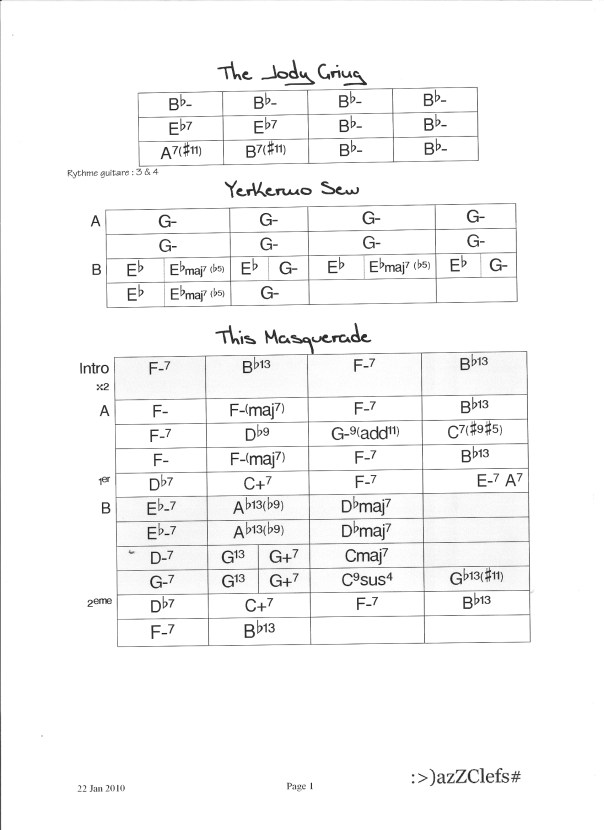 The Jody Griug
B♭- B♭- B♭- B♭-
E♭7 E♭7 B♭- B♭-
A7(♯11) B7(♯11) B♭- B♭-
Rythme guitare : 3 & 4
Yerkermo Sew
A G- G- G- G-
G- G- G- G-
B E♭ E♭maj7 (♭5) E♭ G- E♭ E♭maj7 (♭5) E♭ G-
E♭ E♭maj7 (♭5) G-
This Masquerade
Intro F-7 B♭13 F-7 B♭13
x2
A F- F-(maj7) F-7 B♭13
F-7 D♭9 G-9(add11) C7(♯9♯5)
F- F-(maj7) F-7 B♭13
1er D♭7 C+7 F-7 E-7 A7
B E♭-7 A♭13(♭9) D♭maj7
E♭-7 A♭13(♭9) D♭maj7
D-7 G13 G+7 Cmaj7
G-7 G13 G+7 C9sus4 G♭13(♯11)
2eme D♭7 C+7 F-7 B♭13
F-7 B♭13
22 Jan 2010 Page 1 :>)azZClefs#